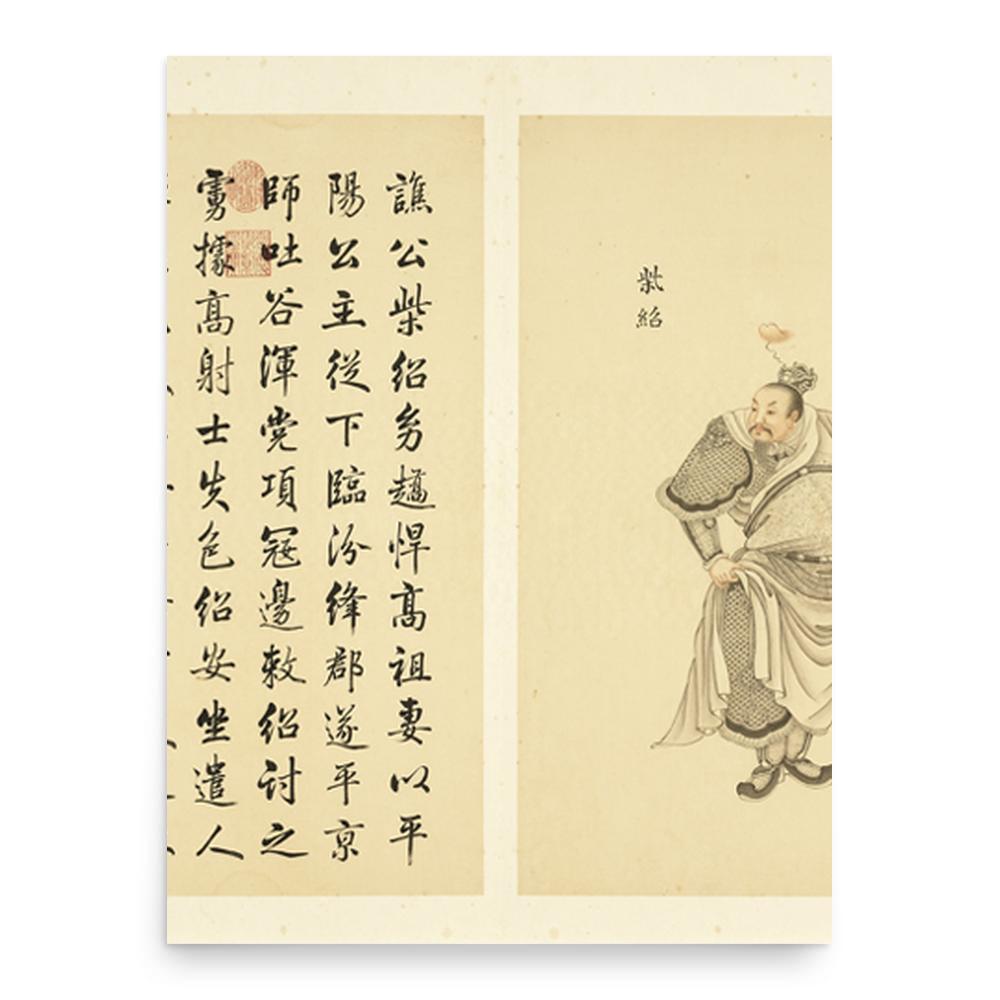 柴紹
譙公柴紹幼趫悍高祖妻以平
陽公主從下臨汾絳郡遂平京
師吐谷渾党項寇邊敕紹討之
虜據高射士失色紹安坐遣人